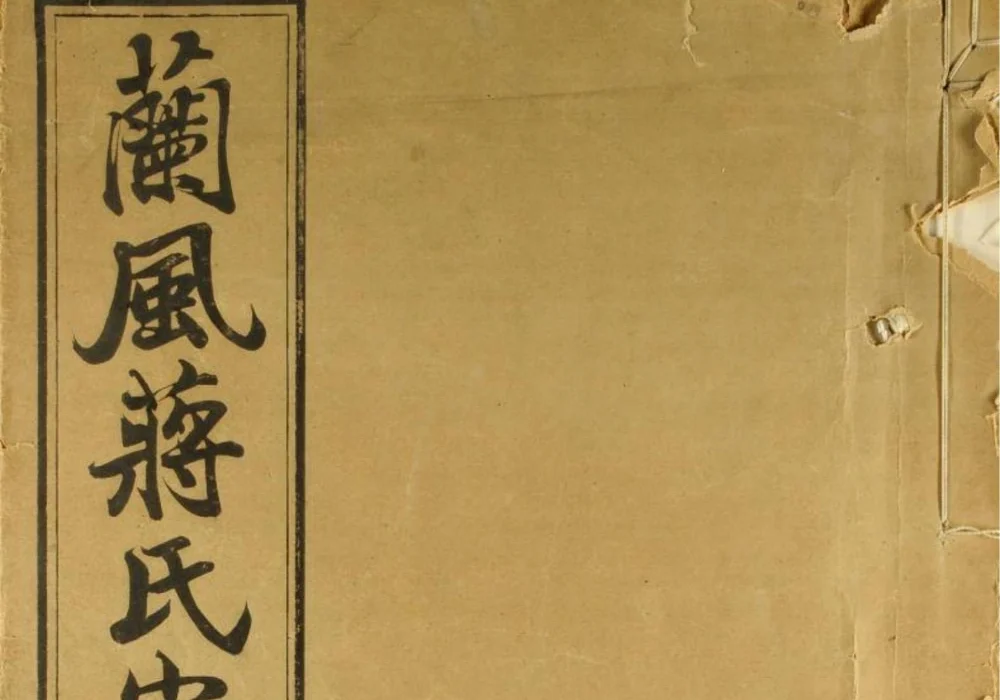 蘭風蔣氏